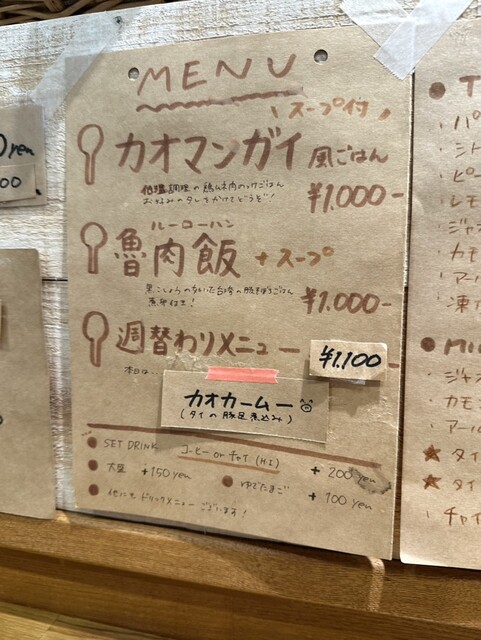 MENU
スープ付
カオマンガイ 風ごはん
低温調理の鶏ムネ肉のっけごはん
お好みのタレをかけてどうぞ!
¥1.000-
ルーローハン
魯肉飯 +スープ
黒こしょうのきいた台湾の豚そぼろごはん
煮卵付き!
¥1.000-
週替わりメニュー
¥1,100
本日は、
カオカームー
(タイの豚足煮込み)
SET DRINK コーヒー or チャイ (H.I) +200yen
大盛 +150yen
ゆでたまご +100yen
他にもドリンクメニューございます!
yen
00
T
パ
シト
ピー
レモ
ジャ
カモ
アール
東
MI
ジャン
カモ
アール
★タイ
★タイ
チャイ